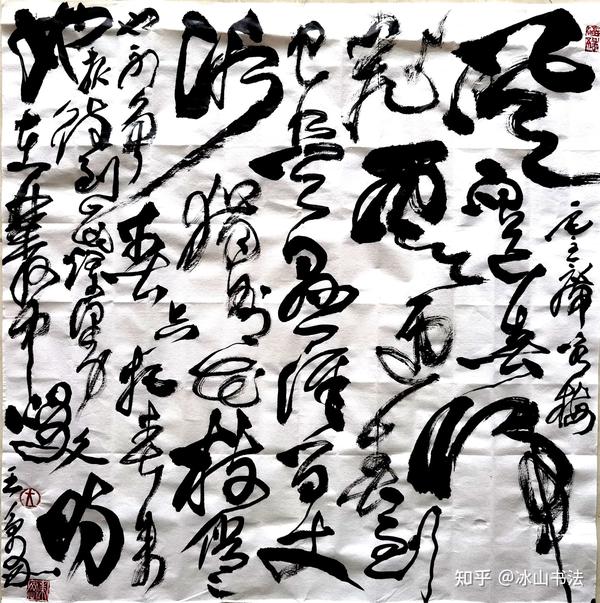 毛主席咏梅
风雨送春归
飞雪迎春到
已是悬崖百丈
冰犹有花枝俏
也不争春只把春来
报待到山花烂漫时
她在丛中笑
知乎 @冰山书法